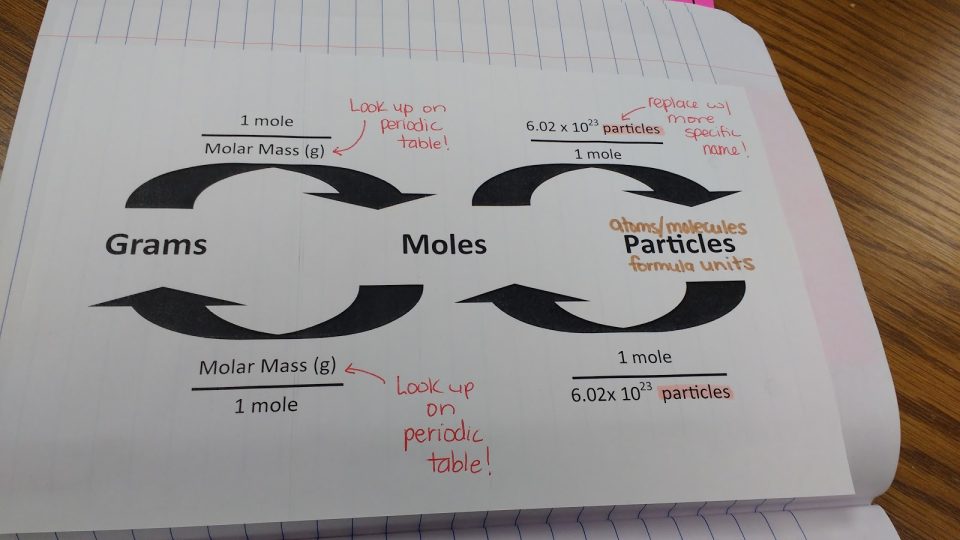 1 mole
Molar Mass (g)
Look up on
periodic
table!
6.02 x 10²³ particles
1 mole
replace w/
more
specific
name!
Grams
Moles
atoms/molecules
Particles
formula units
Molar Mass (g)
1 mole
Look up
on
periodic
table!
1 mole
6.02x 10²³ particles